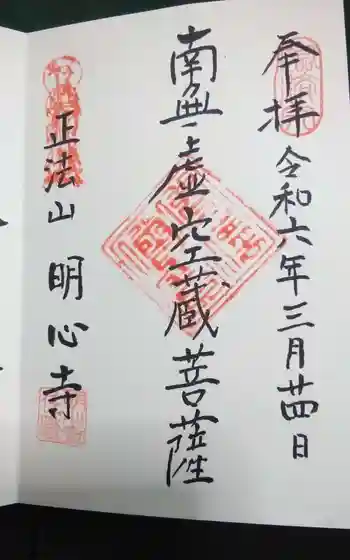 奉拝 令和六年三月廿四日
南無虚空蔵菩薩
正法山 明心寺